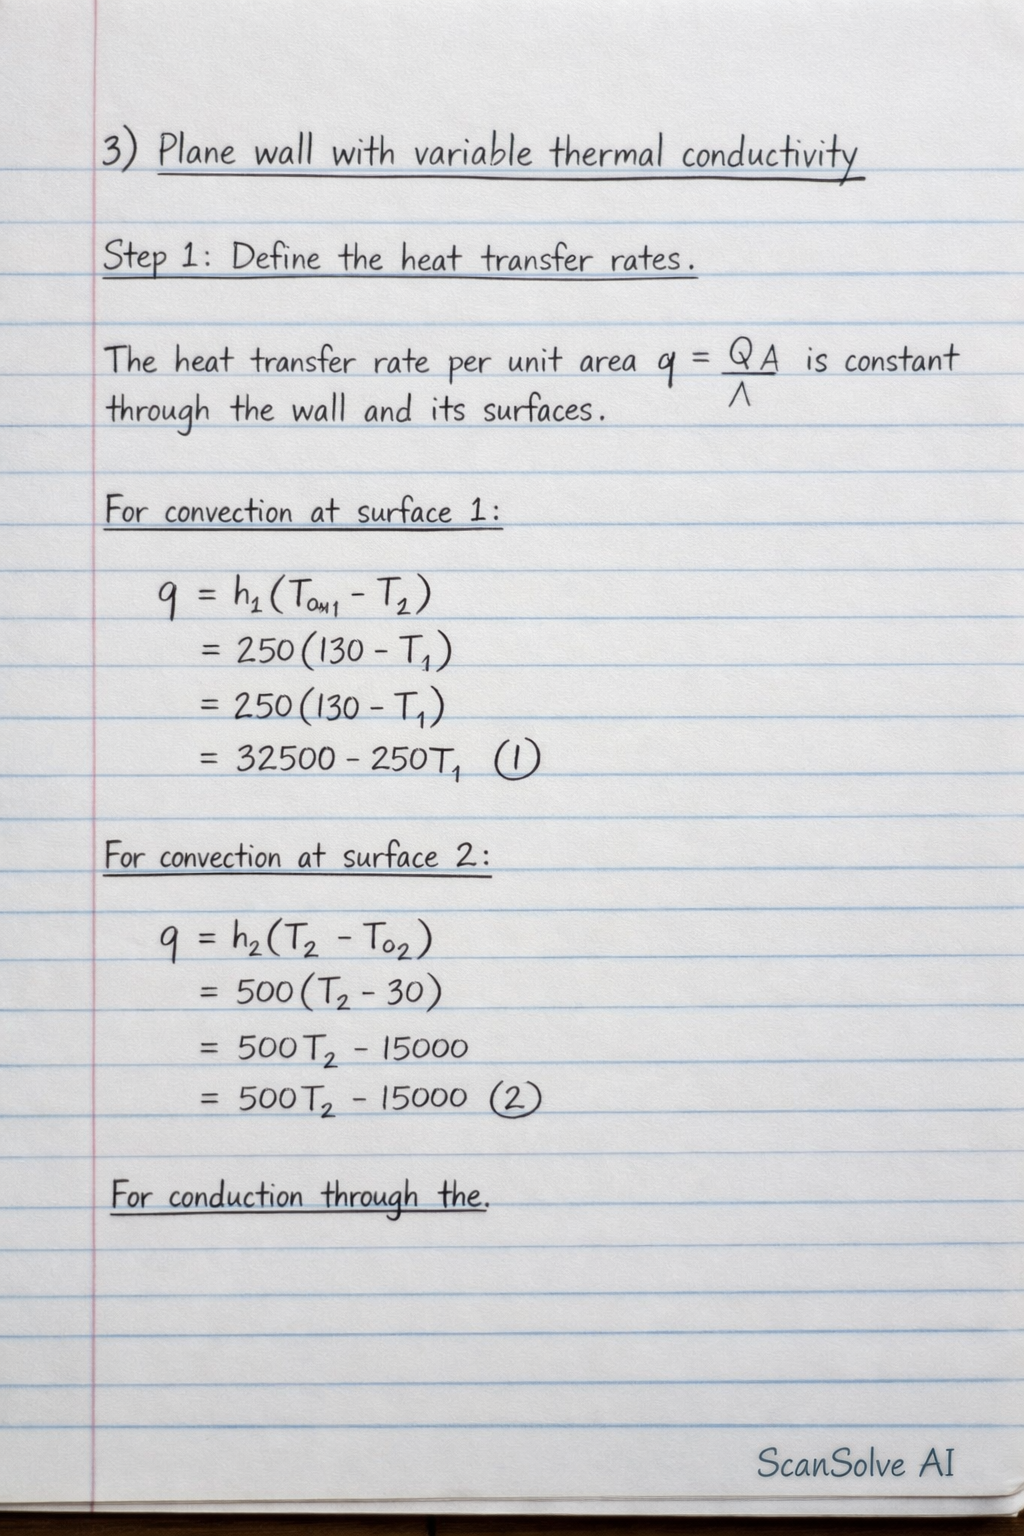 3) Plane wall with variable thermal conductivity
Step 1: Define the heat transfer rates.
The heat transfer rate per unit area q = QA / Λ is constant
through the wall and its surfaces.
For convection at surface 1:
q = h₁(T₀ₘ₁ - T₂)
= 250(130 - T₁)
= 250(130 - T₁)
= 32500 - 250T₁ (1)
For convection at surface 2:
q = h₂(T₂ - T₀₂)
= 500(T₂ - 30)
= 500T₂ - 15000
= 500T₂ - 15000 (2)
For conduction through the.
ScanSolve AI